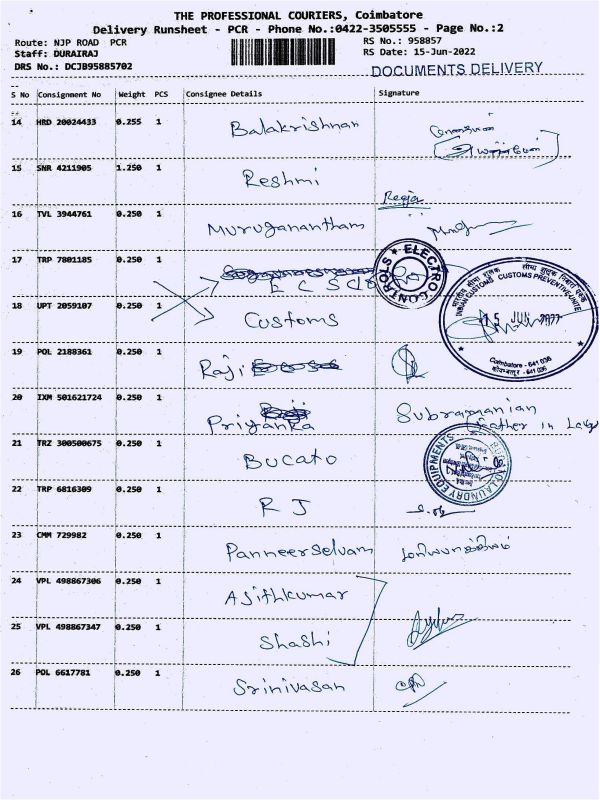 THE PROFESSIONAL COURIERS, Coimbatore
Delivery Runsheet - PCR - Phone No.:0422-3505555 - Page No.:2
Route: NJP ROAD PCR
RS No.: 958857
Staff: DURAIRAJ
RS Date: 15-Jun-2022
DRS No.: DCJB95885702
DOCUMENTS DELIVERY
S No Consignment No Weight PCS Consignee Details Signature
14 HRD 20024433 0.255 1 Balakrishnan
15 SNR 4211905 1.250 1 Reshmi
Regja
16 TVL 3944761 0.250 1 Muruganantham
17 TRP 7801185 0.250 1
ELECTRO CONTROLS
18 UPT 2059107 0.250 1 Customs
सीमा शुल्क निवारक
INDIAN CUSTOMS CUSTOMS PREVENTIVE UNIT
15 JUN 2022
Coimbatore - 641 036
19 POL 2188361 0.250 1 Raji
20 IXM 501621724 0.250 1 Priyanka Subramanian
(father in Law)
21 TRZ 300500675 0.250 1 Bucato
LAUNDRY EQUIPMENTS
22 TRP 6816309 0.250 1 R J
23 CMM 729982 0.250 1 Panneerselvam
24 VPL 498867306 0.250 1 Ajithkumar
25 VPL 498867347 0.250 1 Shashi
26 POL 6617781 0.250 1 Srinivasan